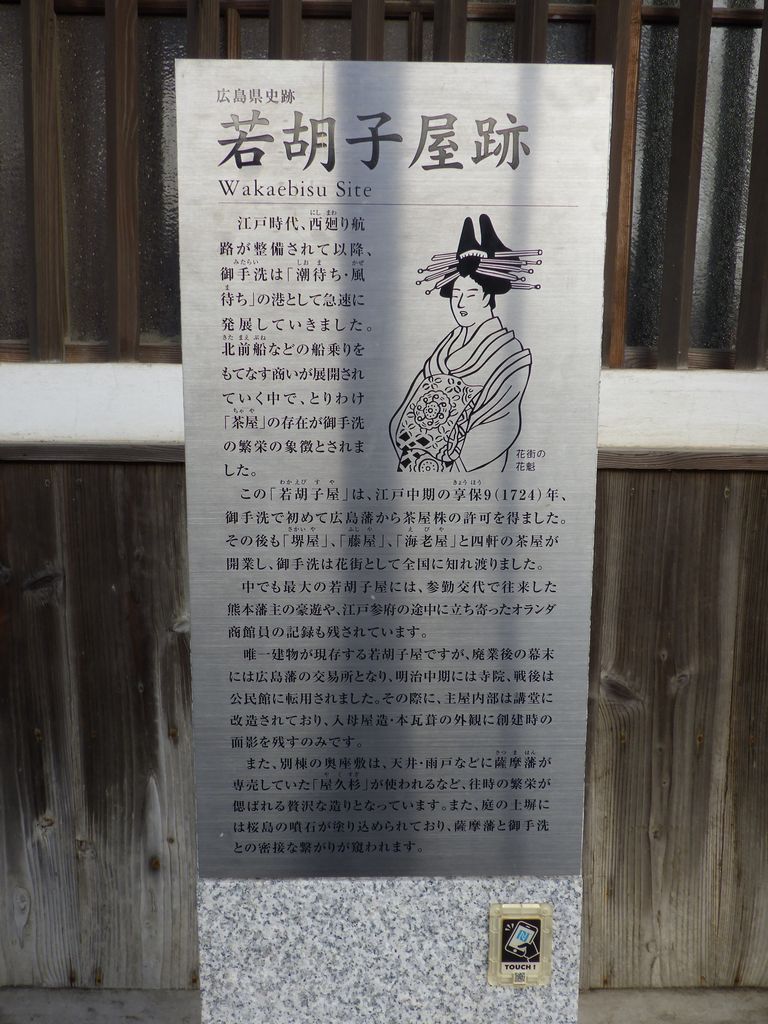 広島県史跡
若胡子屋跡
Wakaebisu Site
江戸時代、西廻り航
路が整備されて以降、
御手洗は「潮待ち・風
待ち」の港として急速に
発展していきました。
北前船などの船乗りを
もてなす商いが展開され
ていく中で、とりわけ
「茶屋」の存在が御手洗
の繁栄の象徴とされま
した。
花街の
花魁
この「若胡子屋」は、江戸中期の享保9(1724)年、
御手洗で初めて広島藩から茶屋株の許可を得ました。
その後も「堺屋」、「藤屋」、「海老屋」と四軒の茶屋が
開業し、御手洗は花街として全国に知れ渡りました。
中でも最大の若胡子屋には、参勤交代で往来した
熊本藩主の豪遊や、江戸参府の途中に立ち寄ったオランダ
商館員の記録も残されています。
唯一建物が現存する若胡子屋ですが、廃業後の幕末
には広島藩の交易所となり、明治中期には寺院、戦後は
公民館に転用されました。その際に、主屋内部は講堂に
改造されており、入母屋造・本瓦葺の外観に創建時の
面影を残すのみです。
また、別棟の奥座敷は、天井・雨戸などに薩摩藩が
専売していた「屋久杉」が使われるなど、往時の繁栄が
偲ばれる贅沢な造りとなっています。また、庭の土塀に
は桜島の噴石が塗り込められており、薩摩藩と御手洗
との密接な繋がりが窺われます。
TOUCH!